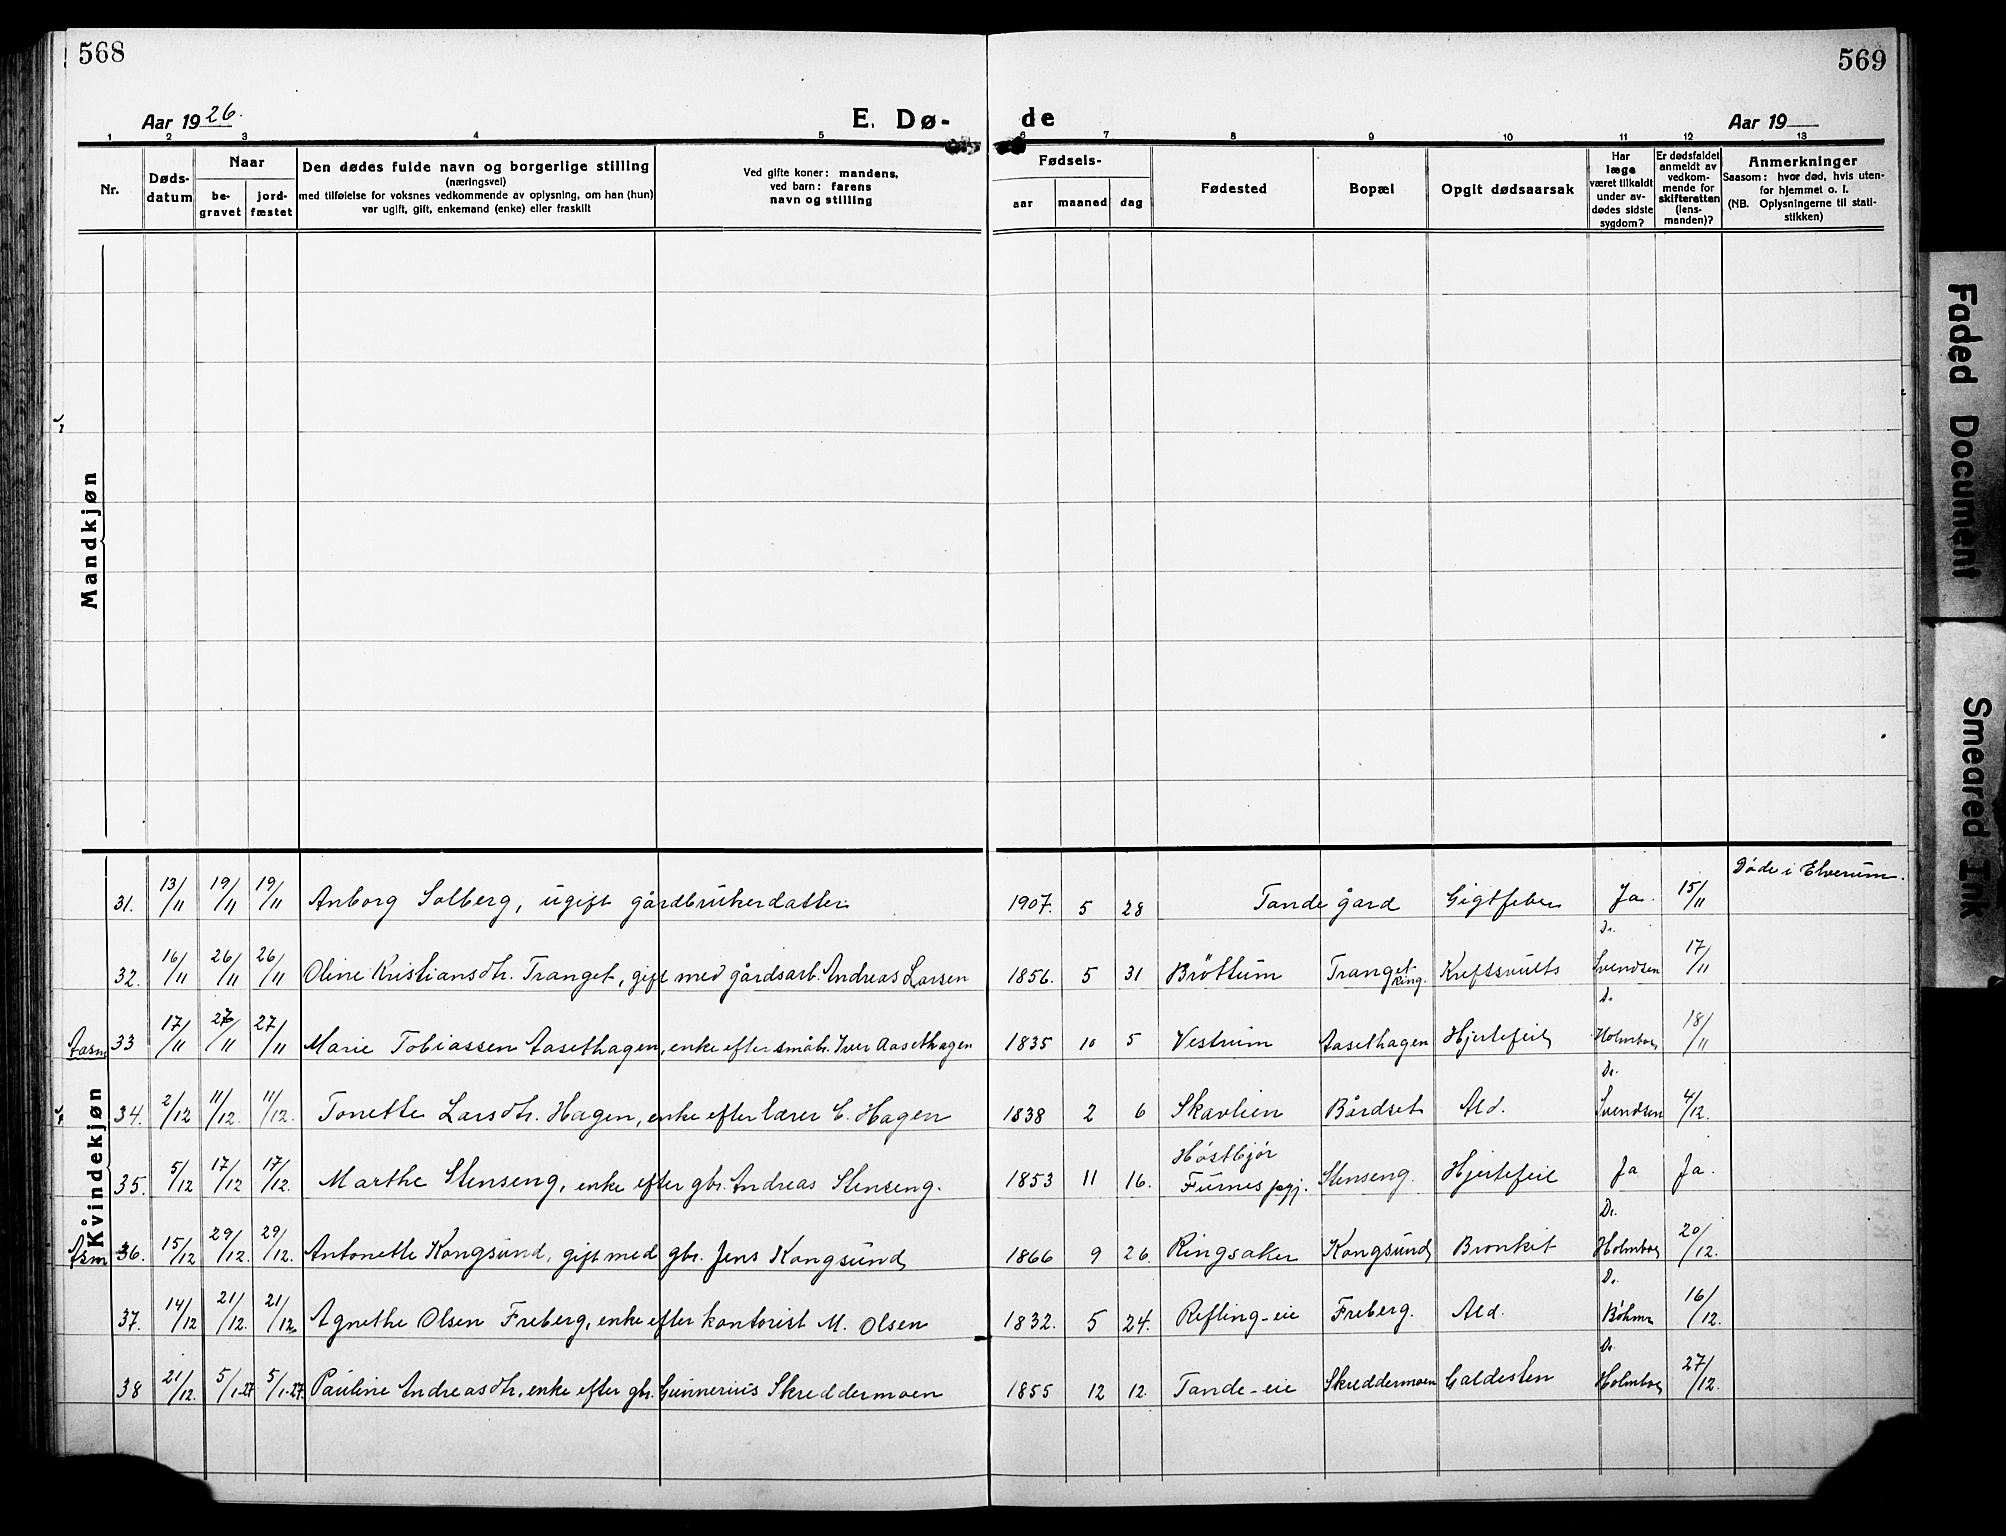 568
569
Aar 1926.
E. Dø-
de
Aar 19
1 2 3 4 5 6 7 8 9 10 11 12 13
Nr.
Døds-
datum
Naar
be-
gravet
jord-
fæstet
Den dødes fulde navn og borgerlige stilling
(næringsvei)
med tilføielse for voksnes vedkommende av oplysning, om han (hun)
var ugift, gift, enkemand (enke) eller fraskilt
Ved gifte koner: mandens,
ved barn: farens
navn og stilling
Fødsels-
aar maaned dag
Fødested
Bopæl
Opgit dødsaarsak
Har
læge
været tilkaldt
under av-
dødes sidste
sygdom?
Er dødsfaldet
anmeldt av
vedkom-
mende for
skifteretten
(lens-
manden)?
Anmerkninger
Saasom: hvor død, hvis uten-
for hjemmet o. l.
(NB. Oplysningerne til stati-
stikken)
Mandkjøn
Kvindekjøn
31. 13/11 19/11 19/11 Anborg Solberg, ugift gårdbrukerdatter 1907. 5 28 Tande gård Gigtfeber Ja. 15/11 Døde i Elverum.
32. 16/11 26/11 26/11 Oline Kristiansdtr. Tranget, gift med gårdsarb. Andreas Larsen 1856. 5 31 Brøttum Tranget Ring. Kreftsvulst Dr. Svendsen 17/11
Aasm 33 17/11 27/11 Marie Tobiassen Aasethagen, enke efter småbr. Iver Aasethagen 1835 10 5 Vestrum Aasethagen Hjertefeil Dr. Holmboe 18/11
34. 2/12 11/12. 11/12. Tonette Larsdtr. Hagen, enke efter lærer C. Hagen 1838 2 6 Skavlien Bårdset Ald. Dr. Svendsen 4/12.
35. 5/12 17/12 17/12. Marthe Stenseng, enke efter gbr. Andreas Stenseng. 1853 11 16. Høstbjør Furnes pgj. Stenseng. Hjertefeil Ja Ja.
Asm 36. 15/12 29/12. 29/12. Antonette Kongsund, gift med gbr. Jens Kongsund 1866 9 26. Ringsaker Kongsund Bronkit Dr. Holmboe 20/12.
37. 14/12 21/12. 21/12. Agnethe Olsen Freberg, enke efter kontorist M. Olsen 1832. 5 24. Refling-eie Freberg. Ald. Dr. Bøhmer 16/12.
38 21/12. 5/1-27 5/1-27. Pauline Andreasdtr, enke efter gbr. Gunnerius Skreddermoen 1855 12 12. Tande-eie Skreddermoen Galdesten Dr. Holmboe 27/12.
Faded Document
Smeared Ink